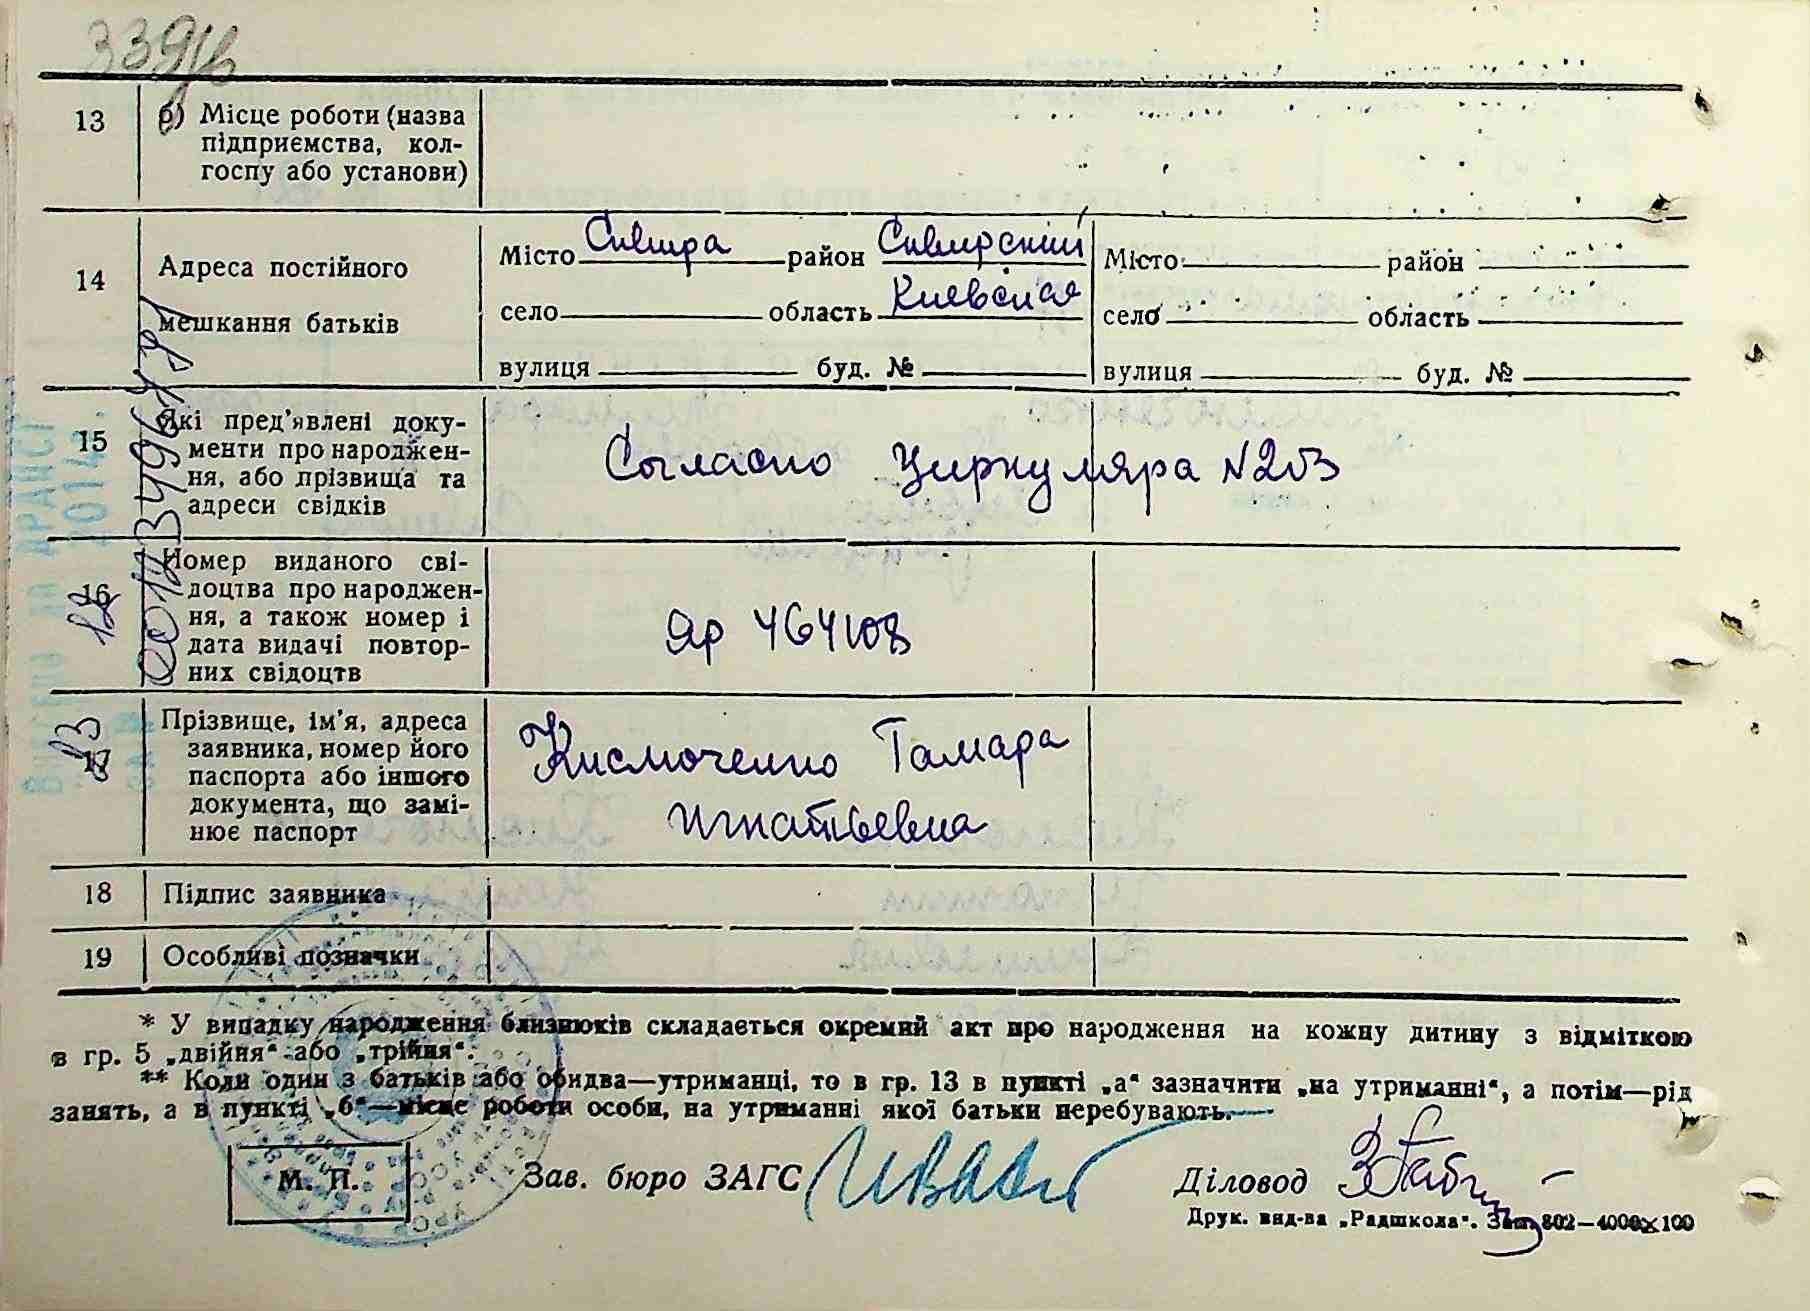 13
б) Місце роботи (назва
підприємства, кол-
госпу або установи)
14
Адреса постійного
мешкання батьків
Місто Сквира район Сквирский
село область Киевская
вулиця буд. №
Місто район
село область
вулиця буд. №
15
Які пред'явлені доку-
менти про народжен-
ня, або прізвища та
адреси свідків
Согласно Циркуляра N 203
16
Номер виданого сві-
доцтва про народжен-
ня, а також номер і
дата видачі повтор-
них свідоцтв
ЯР 464108
Прізвище, ім'я, адреса
заявника, номер його
паспорта або іншого
документа, що замі-
нює паспорт
Тамара
Игнатьевна
18
Підпис заявника
19
Особливі позначки
* У випадку народження близнюків складається окремий акт про народження на кожну дитину з відміткою
в гр. 5 „двійня“ або „трійня“.
** Коли один з батьків або обидва—утриманці, то в гр. 13 в пункті „а“ зазначити „на утриманні“, а потім—рід
занять, а в пункті „б“—місце роботи особи, на утриманні якої батьки перебувають.
М. П.
Зав. бюро ЗАГС
Діловод
Друк. вид-ва „Радшкола“. Зам. 802—4000х100